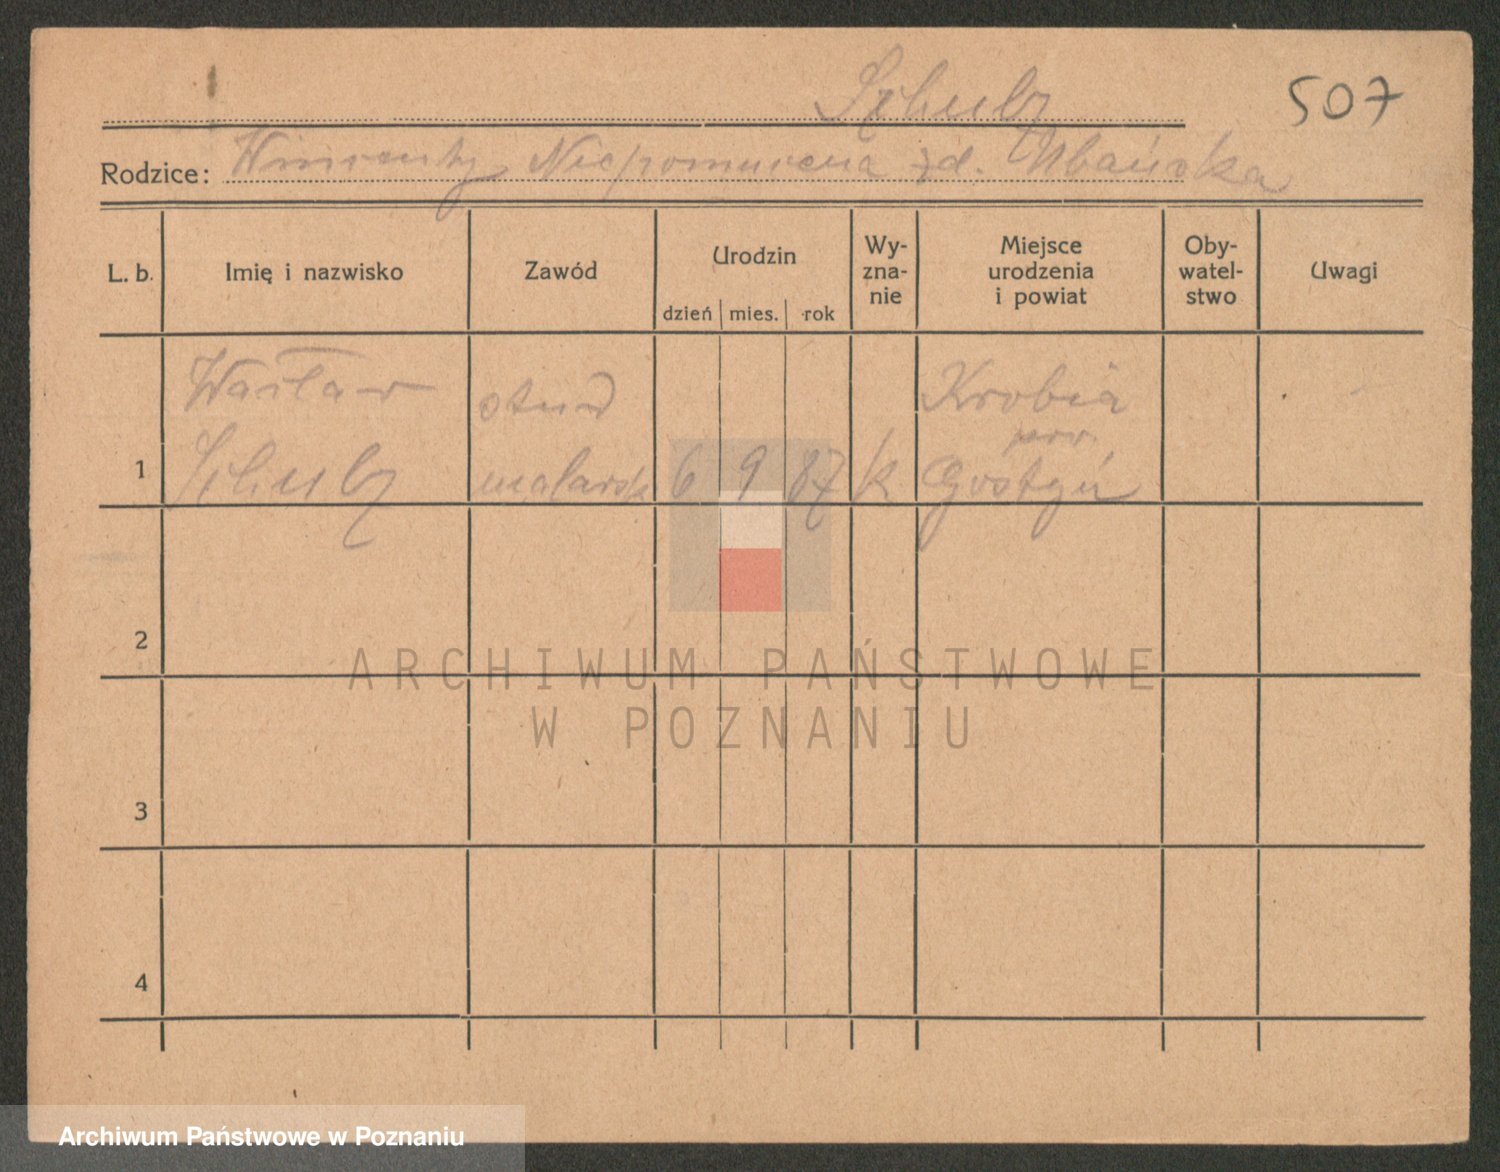 Schulz
507
Rodzice: Wincenty Niepomucena zd. Urbańska
L. b. Imię i nazwisko Zawód Urodzin Wy-zna-nie Miejsce urodzenia i powiat Oby-watel-stwo Uwagi
dzień mies. rok
Wacław stud Krobia
pow.
1 Schulz malarsk 6 9 87 k Gostyń
2
ARCHIWUM PAŃSTWOWE
W POZNANIU
3
4
Archiwum Państwowe w Poznaniu